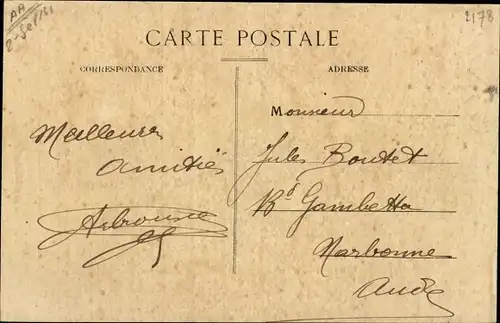 AA
2178
CARTE POSTALE
CORRESPONDANCE
ADRESSE
Meilleures
amitiés
Monsieur
Jules Boutet
Bd Gambetta
Narbonne
Aude